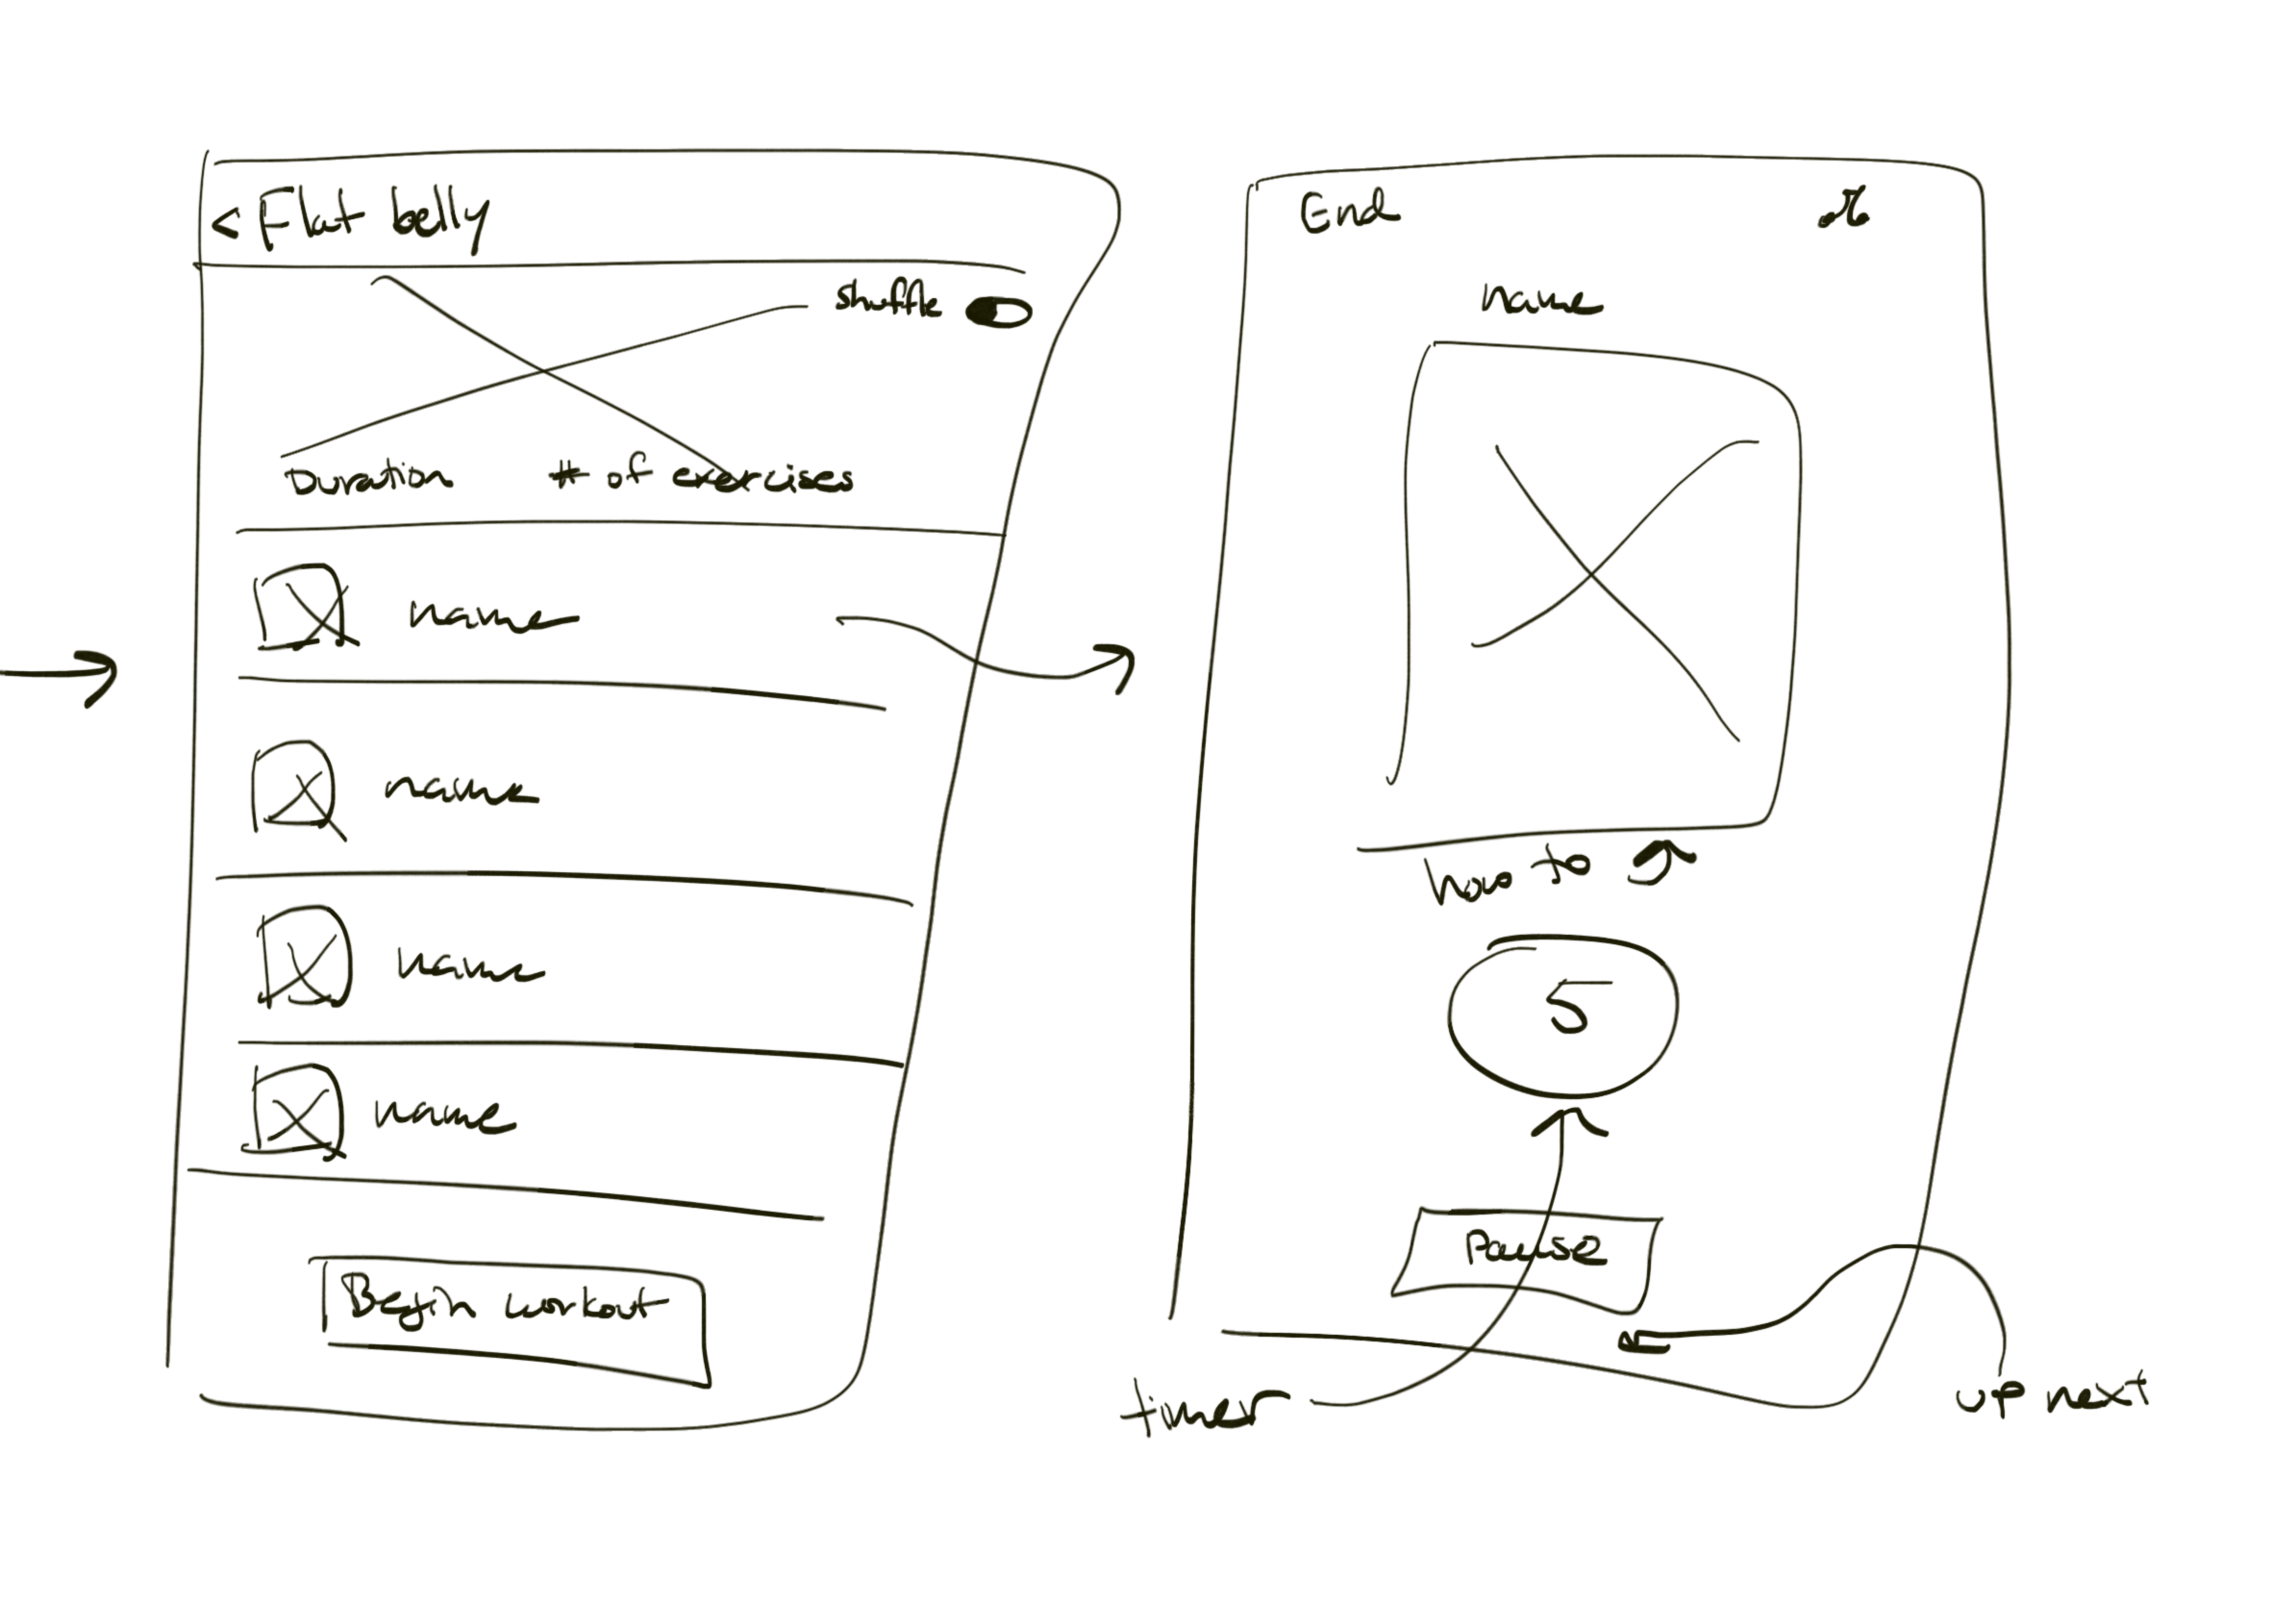 < Flat belly
shuffle
Duration # of exercises
name
name
name
name
Begin workout
End
name
how to
5
Pause
timer
up next